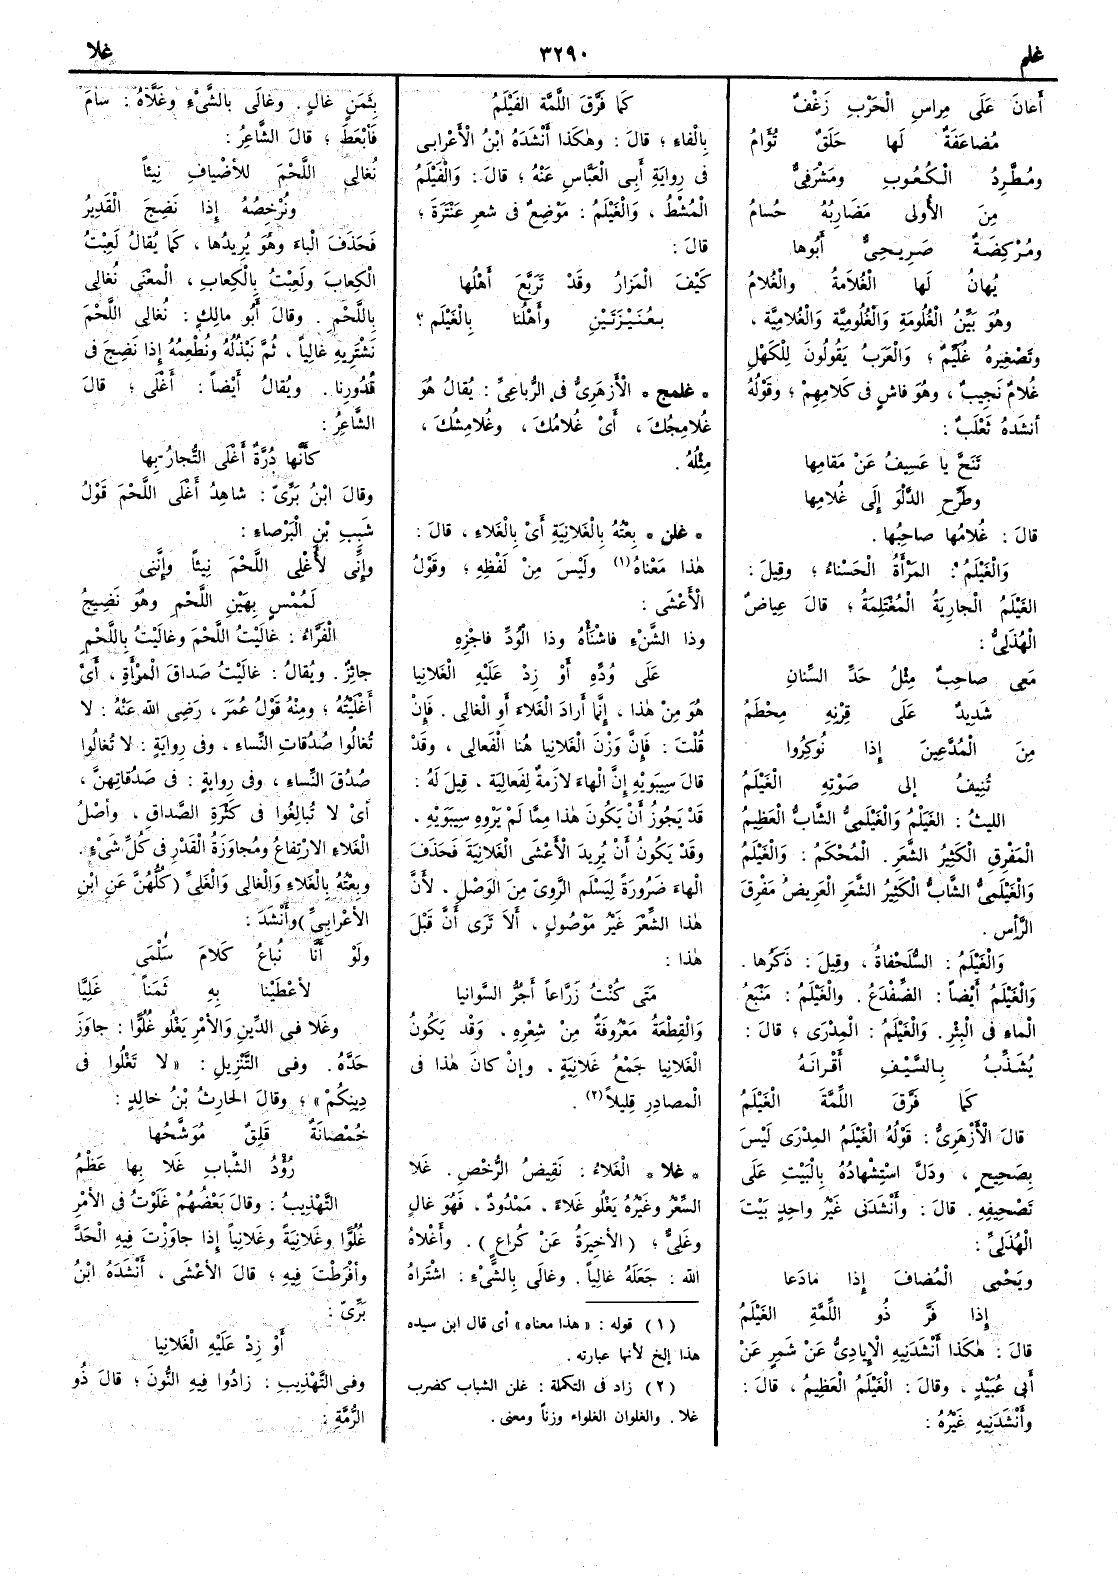 غلم
٣٢٩٠
غلا
أَعانَ عَلَى مِراسِ الْحَرْبِ زَغْفٌ
مُضاعَفَةٌ لَها حَلَقٌ تُؤَامُ
ومُطَّرِدُ الْكُعُوبِ ومَشْرَفِىٌّ
مِنَ الأُولَى مَضَارِبُهُ حُسامُ
ومُرْكِضَةٌ صَرِيحِىٌّ أَبُوها
يُهانُ لَها الْغُلَامَةُ والْغُلامُ
وهُوَ بَيِّنُ الْغُلُومَةِ وَالْغُلُومِيَّةِ وَالْغُلامِيَّةِ ،
وتَصْغِيرُهُ غُلَيِّمٌ ؛ وَالْعَرَبُ يَقُولُونَ لِلْكَهْلِ
غُلامٌ نَجِيبٌ ، وهُوَ فاشٍ فى كَلامِهِمْ ؛ وقَوْلُهُ
أنشدَهُ ثَعْلَبٌ :
تَنَحَّ يا عَسِيفُ عَنْ مَقامِها
وطَرِّحِ الدَّلْوَ إِلَى غُلامِها
قالَ : غُلامُها صاحِبُها .
وَالْغَيْلَمُ : المَرْأَةُ الْحَسْناءُ ؛ وقِيلَ :
الغَيْلَمُ الْجارِيَةُ الْمُغْتَلِمَةُ ؛ قالَ عِياضٌ
الْهُذَلِىُّ :
مَعِى صاحِبٌ مِثْلُ حَدِّ السِّنانِ
شَدِيدٌ عَلَى قِرْنِهِ مِحْطَمُ
مِنَ الْمُدَّعِينَ إِذَا نُوكِرُوا
تُنِيفُ إِلى صَوْتِهِ الْغَيْلَمُ
الليثُ : الغَيْلَمُ وَالْغَيْلَمِىُّ الشَّابُّ الْعَظِيمُ
الْمَفْرِقِ الْكَثِيرُ الشَّعَرِ. الْمُحْكَمُ : وَالْغَيْلَمُ
وَالْغَيْلَمِىُّ الشَّابُّ الْكَثِيرُ الشَّعَرِ الْعَرِيضُ مَفْرِقِ
الرَّأْسِ .
وَالْغَيْلَمُ : السُّلَحْفاةُ ، وقِيلَ : ذَكَرُها .
وَالْغَيْلَمُ أَيْضاً : الضِّفْدَعُ . والْغَيْلَمُ : مَنْبَعُ
الْماءِ فى الْبِئْرِ. وَالْغَيْلَمُ : الْمِدْرَى ؛ قالَ :
يُشَذِّبُ بِالسَّيْفِ أَقْرانَهُ
كَما فَرَّقَ اللِّمَّةَ الْغَيْلَمُ
قالَ الْأَزْهَرِىُّ : قَوْلُهُ الْغَيْلَمُ المِدْرَى لَيْسَ
بِصَحِيحٍ ، ودَلَّ اسْتِشْهادُهُ بِالْبَيْتِ عَلَى
تَصْحِيفِهِ. قالَ : وأَنْشَدَنِى غَيْرُ واحِدٍ بَيْتَ
الْهُذَلِىِّ :
ويَحْمِى الْمُضافَ إِذا مادَعا
إِذا فَرَّ ذُو اللِّمَّةِ الغَيْلَمُ
قالَ : هٰكَذا أَنْشَدَنِيهِ الْإِيادِىُّ عَنْ شَمِرٍ عَنْ
أَبِى عُبَيْدٍ ، وقالَ : الْغَيْلَمُ الْعَظِيمُ ، قالَ :
وأَنْشَدَنِيهِ غَيْرُهُ :
كَما فَرَّقَ اللِّمَّةَ الفَيْلَمُ
بِالْفاءِ ؛ قالَ : وهٰكَذا أَنْشَدَهُ ابْنُ الْأَعْرابِى
فى رِوايَةِ أَبِى الْعَبَّاسِ عَنْهُ ؛ قالَ : وَالْفَيْلَمُ
الْمُشْطُ ، وَالْغَيْلَمُ : مَوْضِعٌ فى شعرِ عَنْتَرَةَ ؛
قالَ :
كَيْفَ الْمَزارُ وقَدْ تَرَبَّعَ أَهْلُها
بِعُنَيْزَتَيْنِ وأَهْلُنا بِالْغَيْلَمِ ؟
• غلمج • الْأَزْهَرِىُّ فى الرُّباعِىِّ : يُقالُ هُوَ
غُلامِجُكَ ، أَىْ غُلامُكَ ، وغُلامِشُكَ ،
مِثْلُهُ .
• غلن • بِعْتُهُ بِالْغَلانِيَةِ أَىْ بِالْغَلاءِ ، قالَ :
هٰذا مَعْناهُ (١) ولَيْسَ مِنْ لَفْظِهِ ؛ وقَوْلُ
الْأَعْشَى :
وذا الشَّنْءِ فاشْنَأْهُ وذا الْوُدِّ فاجْزِهِ
عَلَى وُدِّهِ أَوْ زِدْ عَلَيْهِ الْغَلانِيا
هُوَ مِنْ هٰذا ، إِنَّما أَرادَ الْغَلاءَ أَوِ الْغالِى . فَإِنْ
قُلْتَ : فَإِنَّ وَزْنَ الْغَلانِيا هُنا الْفَعالِى ، وقَدْ
قالَ سِيبَوَيْهِ إِنَّ الْهاءَ لازِمَةٌ لِفَعالِيَة ، قِيلَ لَهُ :
قَدْ يَجُوزُ أَنْ يَكُونَ هٰذا مِمَّا لَمْ يَرْوِهِ سِيبَوَيْهِ .
وقَدْ يَكُونُ أَنْ يُرِيدَ الْأَعْشَى الْغَلانِيَةَ فَحَذَفَ
الْهاءَ ضَرُورَةً لِيَسْلَمَ الرَّوِىُّ مِنَ الْوَصْلِ . لأَنَّ
هٰذا الشِّعْرَ غَيْرُ مَوْصُولٍ ، أَلاَ تَرَى أَنَّ قَبْلَ
هٰذا :
مَتَى كُنْتُ زَرَّاعاً أَجُرُّ السَّوانِيا
وَالْقِطْعَةُ مَعْرُوفَةٌ مِنْ شِعْرِهِ . وقَدْ يَكُونُ
الْغَلانِيا جَمْعُ غَلانِيَةٍ . وإِنْ كانَ هٰذا فى
الْمصادِرِ قَلِيلاً (٢) .
• غلا • الْغَلاءُ : نَقِيضُ الرُّخْصِ. غَلا
السِّعْرُ وغَيْرُهُ يَغْلُو غَلاءً ، مَمْدُودٌ ، فَهُوَ غالٍ
وغَلِىٌّ ؛ (الأَخِيرَةُ عَنْ كُراعٍ ) . وأَغْلاهُ
الله : جَعَلَهُ غالِياً. وغالَى بِالشَّىْءِ : اشْتَراهُ
(١) قوله : « هذا معناه » أى قال ابن سيده
هذا إلخ لأنها عبارته .
(٢) زاد فى التكملة : غلن الشباب كضرب
غلا . والغلوان الغلواء وزناً ومعنى .
بِثَمَنٍ غالٍ. وغالَى بالشَّىْءِ وغَلَّاهُ : سامَ
فَأَبْعَطَ ؛ قالَ الشَّاعِرُ :
نُغالِى اللَّحْمَ للأَضْيافِ نِيئاً
ونُرْخِصُهُ إِذا نَضِجَ الْقَدِيرُ
فَحَذَفَ الْباءَ وهُوَ يُرِيدُها ، كَما يُقالُ لَعِبْتُ
الْكِعابَ ولَعِبْتُ بِالْكِعابِ ، الْمَعْنَى نُغالِى
بِاللَّحْمِ . وقالَ أَبُو مالِكٍ : نُغالِى اللَّحْمَ
نَشْتَرِيهِ غالِياً ، ثُمَّ نَبْذُلُهُ ونُطْعِمُهُ إِذا نَضِجَ فى
قُدُورِنا . ويُقالُ أَيْضاً : أَغْلَى ؛ قالَ
الشَّاعِرُ :
كَأَنَّها دُرَّةٌ أَغْلَى التُّجارُ بِها
وقالَ ابْنُ بَرِّىّ : شاهِدُ أَغْلَى اللَّحْمَ قَوْلُ
شَبِيبِ بْنِ الْبَرْصاءِ :
وإِنِّى لَأُغْلِى اللَّحْمَ نِيئاً وإِنَّنِى
لَمُمْسٍ بِهَيْنِ اللَّحْمِ وهْوَ نَضِيجُ
الْفَرَّاءُ : غالَيْتُ اللَّحْمَ وغالَيْتُ بِاللَّحْمِ
جائِزٌ. ويُقالُ : غالَيْتُ صَداقَ الْمَرْأَةِ ، أَىْ
أَغْلَيْتُهُ ؛ ومِنْهُ قَوْلُ عُمَرَ ، رَضِىَ الله عَنْهُ : لا
تُغالُوا صُدُقاتِ النِّساءِ ، وفى رِوايَةٍ : لا تُغالُوا
صُدُقَ النِّساءِ ، وفى رِوايَةٍ : فى صَدُقاتِهِنَّ ،
أىْ لا تُبالِغُوا فى كَثْرَةِ الصَّداقِ . وأصْلُ
الْغَلاءِ الارْتِفاعُ ومُجاوَزَةُ الْقَدْرِ فى كُلِّ شَىْءٍ .
وبِعْتُهُ بِالْغَلاءِ وَالْغالِى وَالْغَلِىِّ (كُلُّهُنَّ عَنِ ابْنِ
الأَعْرابِىِّ) وأَنْشَدَ :
ولَوْ أَنَّا نُباعُ كَلامَ سَلْمَى
لأَعْطَيْنا بِهِ ثَمَناً غَلِيَّا
وغَلا فى الدِّينِ وَالأَمْرِ يَغْلُو غُلُوًّا : جاوَزَ
حَدَّهُ. وفى التَّنْزِيلِ : « لا تَغْلُوا فى
دِينِكُمْ » ؛ وقالَ الحارِثُ بْنُ خالِدٍ :
خُمْصانَةٌ قَلِقٌ مُوَشَّحُها
رُؤْدُ الشَّبابِ غَلا بِها عَظْمُ
التَّهْذِيبُ : وقالَ بَعْضُهُمْ غَلَوْتُ فى الأَمْرِ
غُلُوًّا وغَلانِيَةً وغَلانِياً إِذا جاوَزْتَ فِيهِ الْحَدَّ
وأَفْرَطْتَ فِيهِ ؛ قالَ الأَعْشَى ، أَنْشَدَهُ ابْنُ
بَرِّىّ :
أَوْ زِدْ عَلَيْهِ الْغَلانِيا
وفى التَّهْذِيبِ : زادُوا فِيهِ النُّونَ ؛ قالَ ذُو
الرُّمَّةِ :